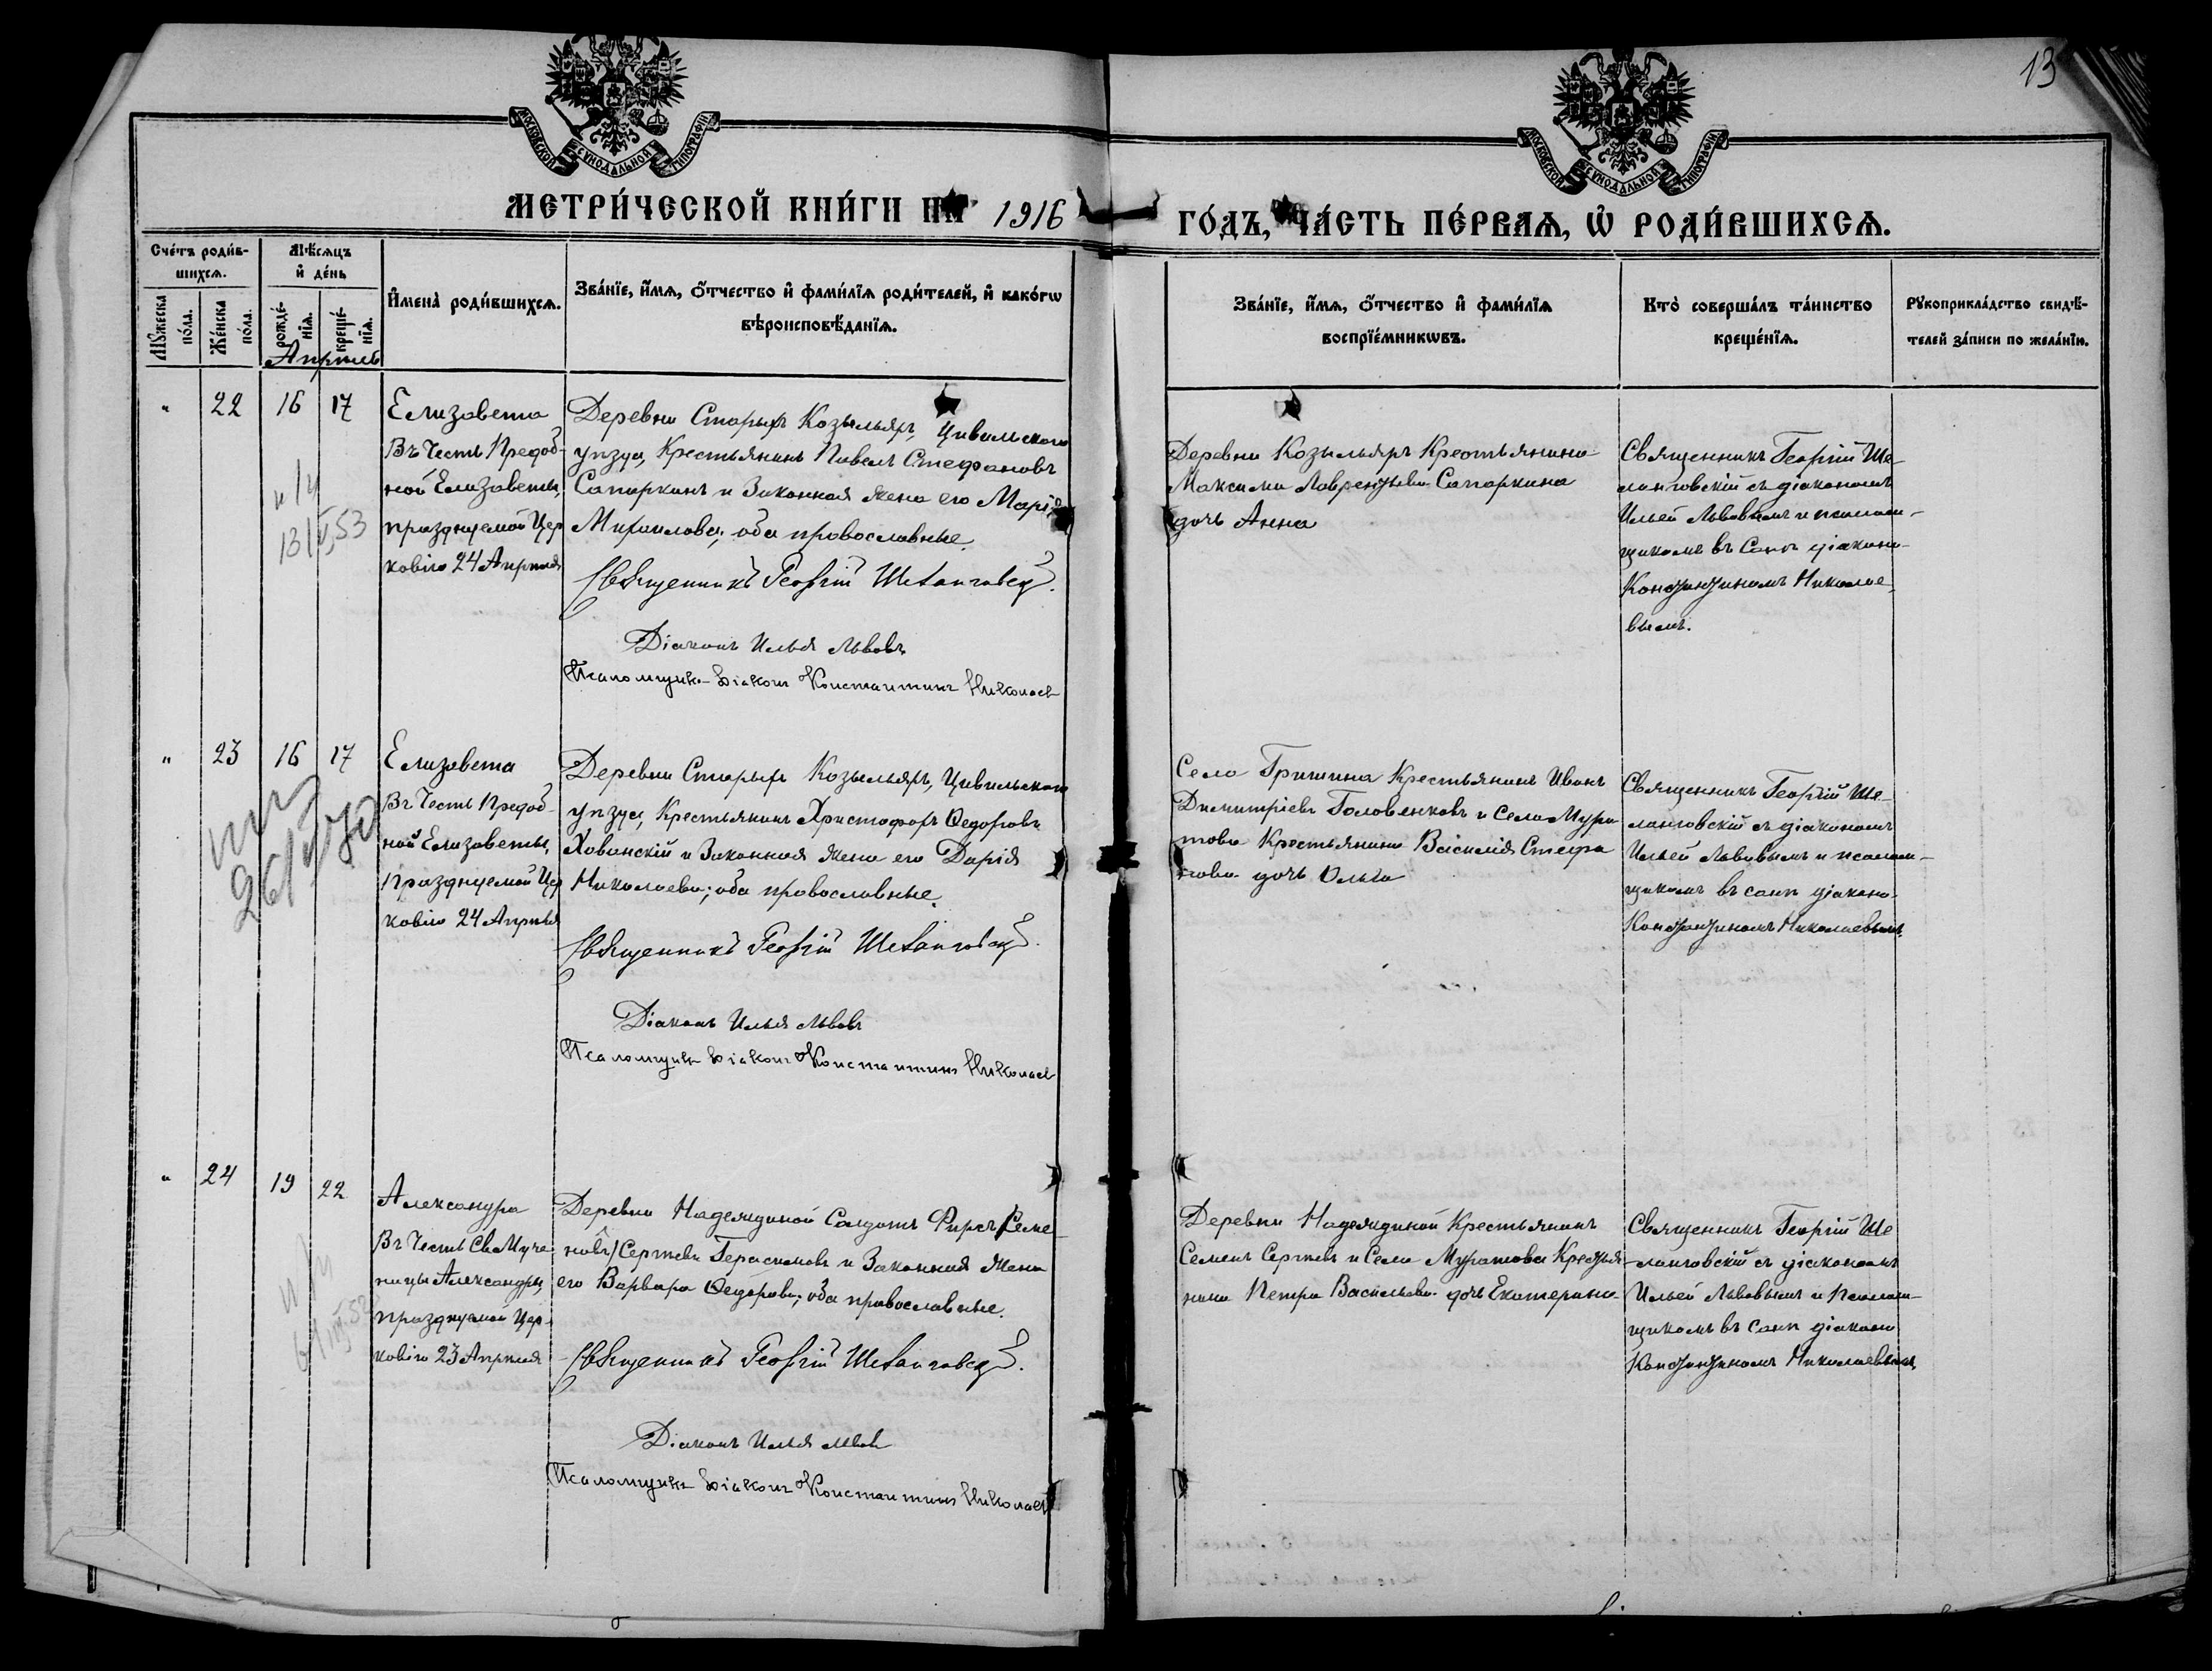 13
МОСКОВСКОЙ СѴНОДАЛЬНОЙ ТИПОГРАФІИ
МОСКОВСКОЙ СѴНОДАЛЬНОЙ ТИПОГРАФІИ
МЕТРИ́ЧЕСКОЙ КНИ́ГИ НА 1916 ГО́ДЪ, ЧА́СТЬ ПЕ́РВАѦ, Ѡ҆ РОДИ́ВШИХСѦ.
Сче́тъ роди́в-
шихсѧ.
Мѣ́сѧцъ
и҆ де́нь
Мꙋ́жеска
по́ла.
Же́нска
по́ла.
рожде́-
нїѧ.
креще́-
нїѧ.
Апрѣль
И҆мена̀ роди́вшихсѧ.
Зва́нїе, и҆́мѧ, ѻ҆́тчество и҆ фами́лїѧ роди́телей, и҆ како́гѡ
вѣроисповѣ́данїѧ.
Зва́нїе, и҆́мѧ, ѻ҆́тчество и҆ фами́лїѧ
воспрїе́мникѡвъ.
Кто̀ соверша́лъ та́инство
креще́нїѧ.
Рꙋкоприкла́дство свидѣ́-
телей за́писи по жела́нїю.
" 22 16 17
Елизавета
Въ Честь Препод-
ной Елизаветы,
празднуемой Цер
ковію 24 Апрѣля
Деревни Старыхъ Козыльяръ, Цивильскаго
уѣзда, Крестьянинъ Павелъ Стефановъ
Сапаркинъ и Законная жена его Марія
Михаилова; оба православные.
Священникъ Георгій Шеланговскій.
Діаконъ Илья Львовъ
Псаломщикъ-діаконъ Константинъ Николаев
Деревни Козыльяръ Крестьянина
Максима Лаврентьева Сапаркина
дочь Анна
Священникъ Георгій Ше-
ланговскій съ діакономъ
Ильей Львовымъ и псалом-
щикомъ въ санѣ діакона
Константиномъ Николае-
вымъ.
" 23 16 17
Елизавета
Въ Честь Препод-
ной Елизаветы,
Празднуемой Цер
ковію 24 Апрѣля
Деревни Старыхъ Козыльяръ, Цивильскаго
уѣзда, Крестьянинъ Христофоръ Ѳедоровъ
Хованскій и Законная жена его Дарія
Николаева; оба православные.
Священникъ Георгій Шеланговскій.
Діаконъ Илья Львовъ
Псаломщикъ діаконъ Константинъ Николаев
Села Гришина Крестьянинъ Иванъ
Димитріевъ Головенковъ и Села Мура
това Крестьянина Василія Стефа
нова дочь Ольга
Священникъ Георгій Ше-
ланговскій съ діакономъ
Ильей Львовымъ и псалом-
щикомъ въ санѣ діакона
Константиномъ Николаевымъ.
" 24 19 22
Александра
Въ Честь Св. Муче
ницы Александры,
празднуемой Цер-
ковію 23 Апрѣля
Деревни Надеждиной Солдатъ Фирсъ (Семе
новъ) Сергѣевъ Герасимовъ и Законная жена
его Варвара Ѳедорова; оба православные.
Священникъ Георгій Шеланговскій.
Діаконъ Илья Львов
Псаломщикъ діаконъ Константинъ Николаев
Деревни Надеждиной Крестьянинъ
Семенъ Сергѣевъ и Села Муратова Крестья
нина Петра Васильева дочь Екатерина
Священникъ Георгій Ше
ланговскій съ діакономъ
Ильей Львовымъ и Псалом-
щикомъ въ санѣ діакона
Константиномъ Николаевымъ